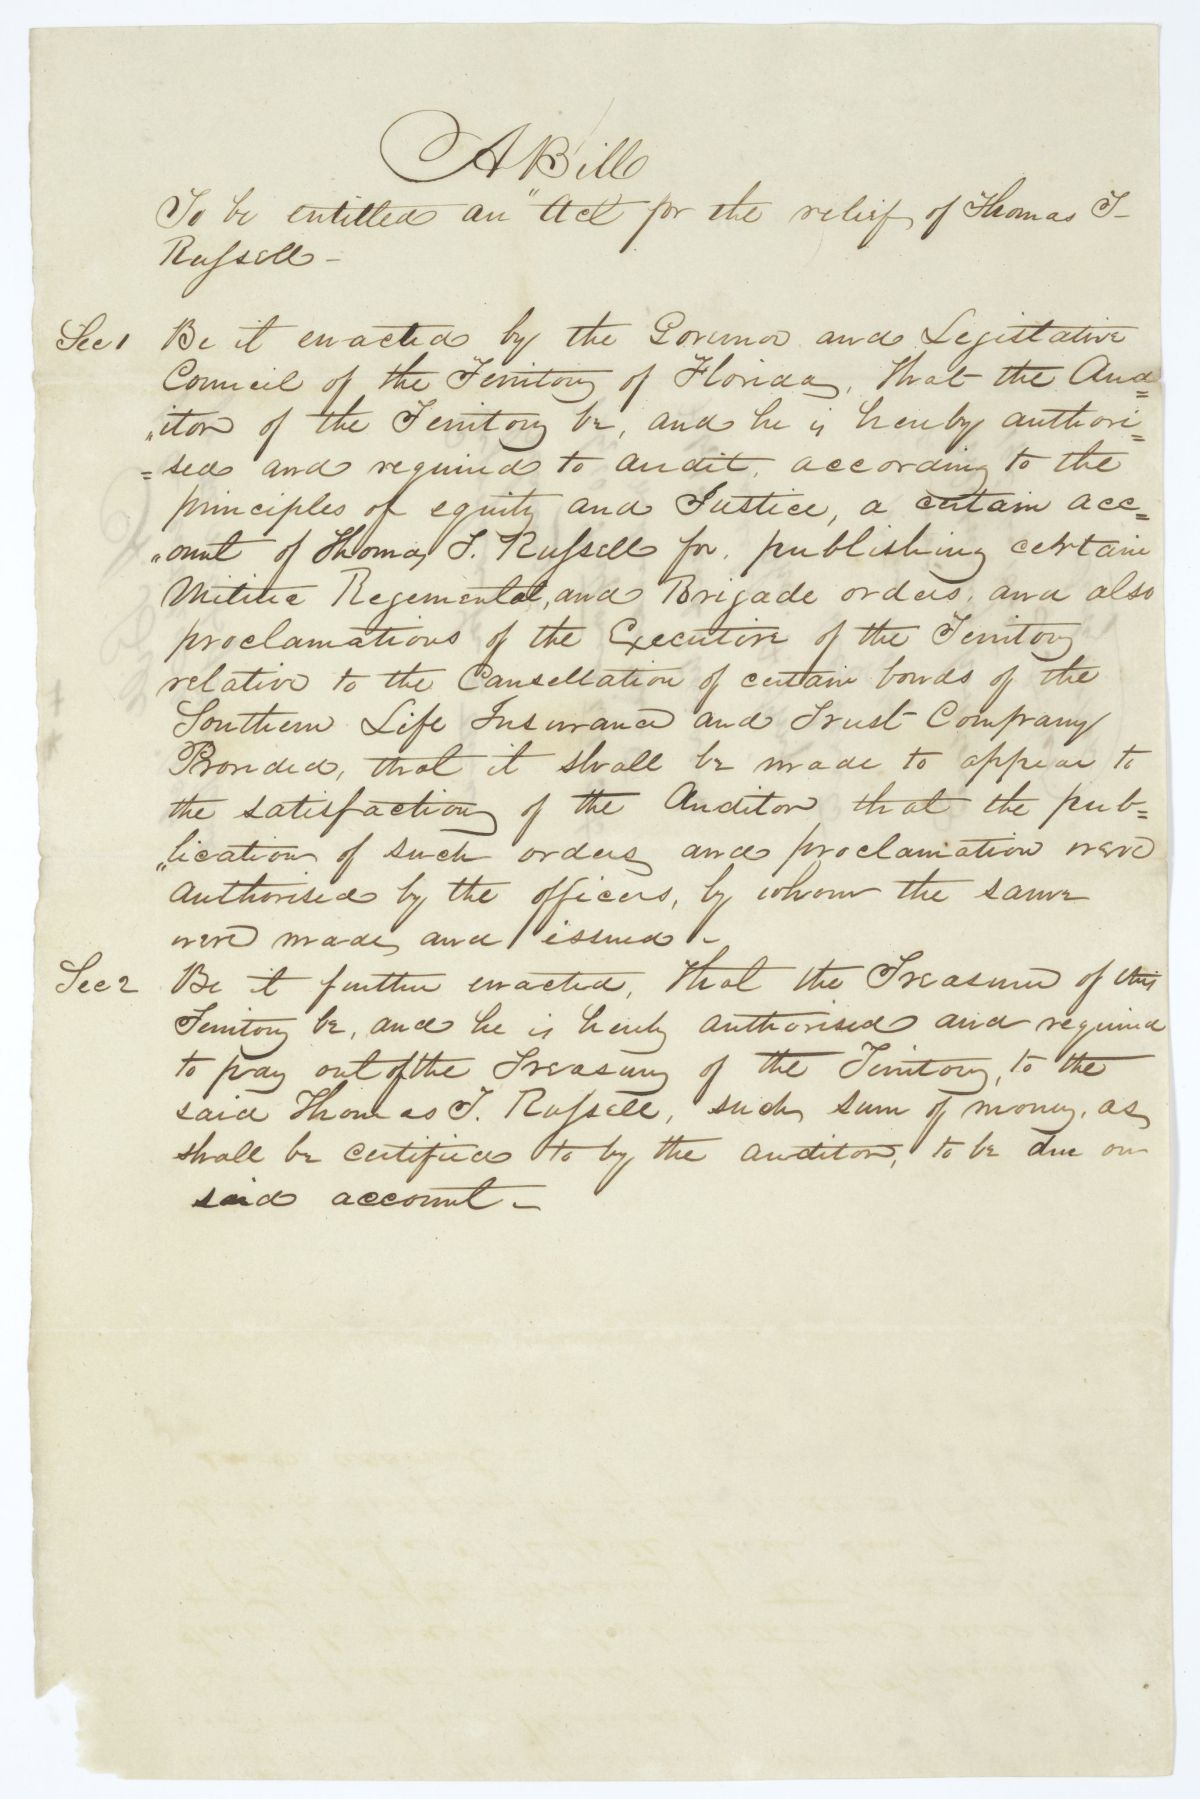 A Bill
To be entitled an "Act for the relief of Thomas T
Russell -
Sec 1 Be it enacted by the Governor and Legislative
Council of the Territory of Florida, That the Aud=
"itor of the Territory be, and he is hereby authori=
=sed and required to audit, according to the
principles of equity and Justice, a certain acc=
"ount of Thomas T. Russell for, publishing certain
Militia Regemental, and Brigade orders, and also
proclamations of the Executive of the Territory
relative to the Cansellation of certain bonds of the
Southern Life Insurance and Trust Company
Provided, that it shall be made to appear to
the satisfaction of the Auditor that the pub=
"lication of such orders and proclamation were
authorised by the officers, by whom the same
were made and issued -
Sec 2 Be it further enacted, That the Treasurer of this
Territory be, and he is hereby authorised and required
to pay out of the Treasury of the Territory, to the
said Thomas T. Russell, such sum of money, as
shall be certified to by the auditor, to be due on
said account -